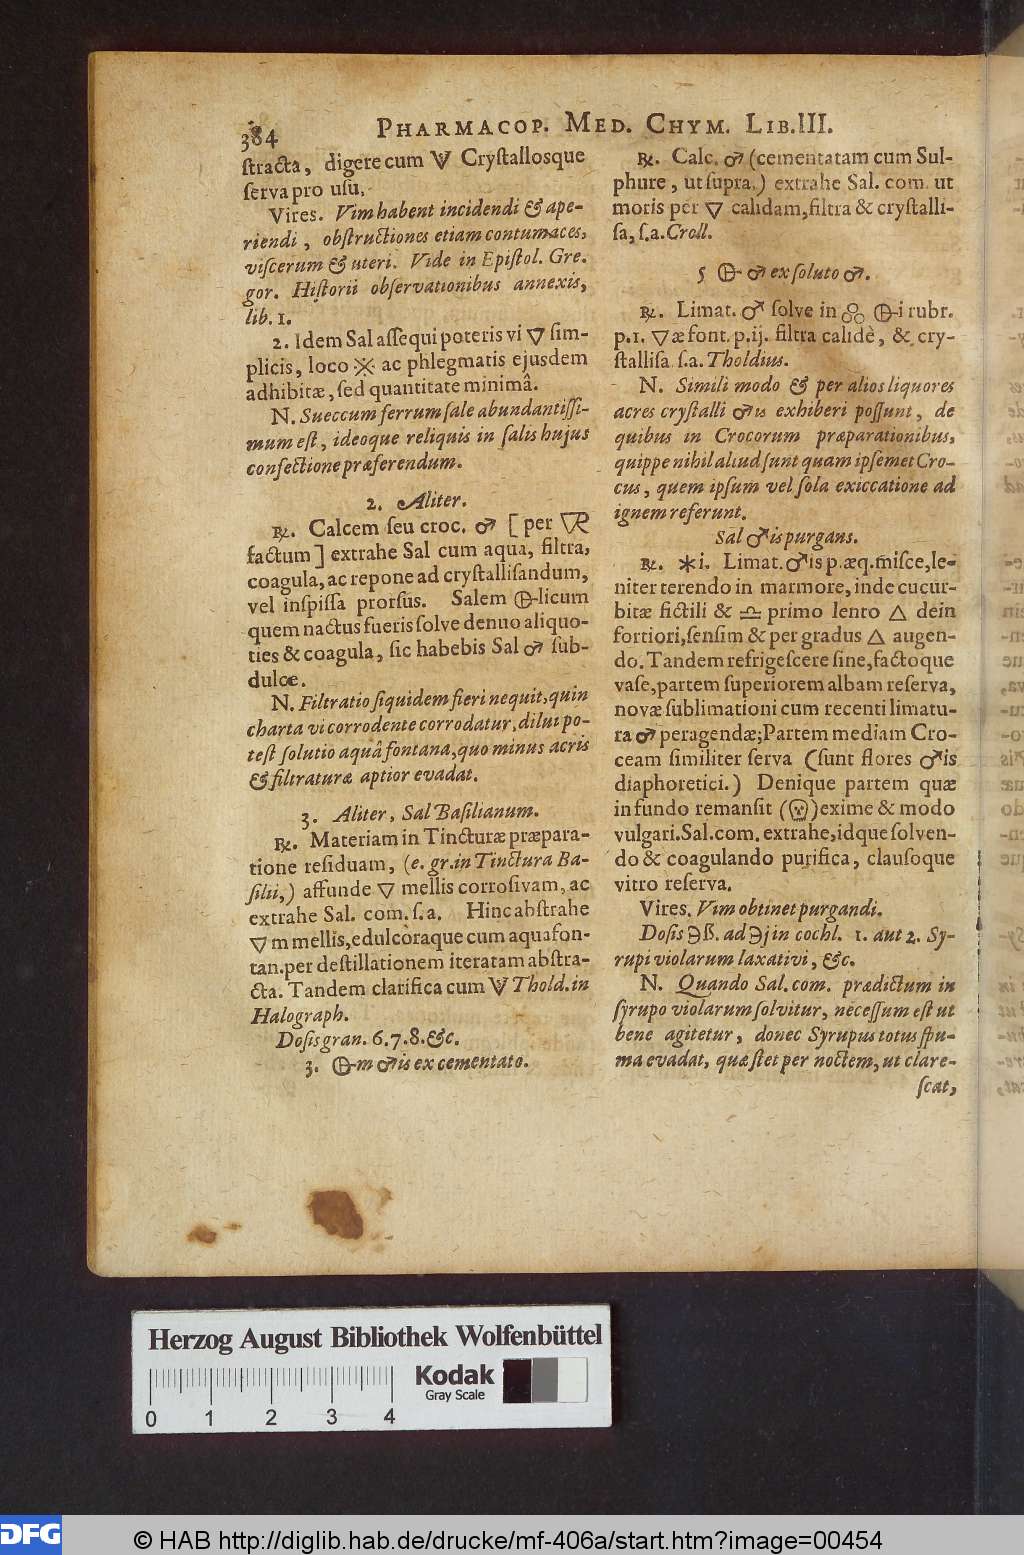 384 PHARMACOP. MED. CHYM. LIB.III.
ſtracta, digere cum 🜇 Cryſtallosque
ſerva pro uſu.
Vires. Vim habent incidendi & ape-
riendi, obſtructiones etiam contumaces,
viſcerum & uteri. Vide in Epiſtol. Gre.
gor. Hiſtorii obſervationibus annexis,
lib. 1.
2. Idem Sal aſſequi poteris vi 🜄 ſim-
plicis, loco ac phlegmatis ejusdem
adhibitæ, ſed quantitate minimâ.
N. Sueccum ferrum ſale abundantiſſi-
mum eſt, ideoque reliquis in ſalis hujus
confectione præferendum.
2. Aliter.
℞. Calcem ſeu croc. ♂ [per 🜆
factum] extrahe Sal cum aqua, filtra,
coagula, ac repone ad cryſtalliſandum,
vel inſpiſſa prorſus. Salem 🜖-licum
quem nactus fueris ſolve denuo aliquo-
ties & coagula, ſic habebis Sal ♂ ſub-
dulce.
N. Filtratio ſiquidem fieri nequit, quin
charta vi corrodente corrodatur, dilui po-
teſt ſolutio aquâ fontana, quo minus acris
& filtraturæ aptior evadat.
3. Aliter, Sal Baſilianum.
℞. Materiam in Tincturæ præpara-
tione reſiduam, (e. gr. in Tinctura Ba-
ſilii,) affunde 🜄 mellis corroſivam, ac
extrahe Sal. com. ſ. a. Hinc abſtrahe
🜄m mellis, edulcoraque cum aqua fon-
tan. per deſtillationem iteratam abſtra-
cta. Tandem clarifica cum 🜇 Thold. in
Halograph.
Doſis gran. 6. 7. 8. &c.
3. 🜖-m ♂is ex cementato.
℞. Calc. ♂ (cementatam cum Sul-
phure, ut ſupra.) extrahe Sal. com. ut
moris per 🜄 calidam, filtra & cryſtalli-
ſa, ſ. a. Croll.
5 🜖- ♂ ex ſoluto ♂.
℞. Limat. ♂ ſolve in 🜖-i rubr.
p. 1. 🜄æ font. p. ij. filtra calidè, & cry-
ſtalliſa ſ. a. Tholdius.
N. Simili modo & per alios liquores
acres cryſtalli ♂is exhiberi poſſunt, de
quibus in Crocorum præparationibus,
quippe nihil aliud ſunt quam ipſemet Cro-
cus, quem ipſum vel ſola exiccatione ad
ignem referunt.
Sal ♂is purgans.
℞. 🞶i. Limat. ♂is p. æq. m̃iſce, le-
niter terendo in marmore, inde cucur-
bitæ fictili & ♎ primo lento 🜂 dein
fortiori, ſenſim & per gradus 🜂 augen-
do. Tandem refrigeſcere ſine, factoque
vaſe, partem ſuperiorem albam reſerva,
novæ ſublimationi cum recenti limatu-
ra ♂ peragendæ; Partem mediam Cro-
ceam ſimiliter ſerva (ſunt flores ♂is
diaphoretici.) Denique partem quæ
in fundo remanſit (☠) exime & modo
vulgari. Sal. com. extrahe, idque ſolven-
do & coagulando purifica, clauſoque
vitro reſerva.
Vires. Vim obtinet purgandi.
Doſis ℈ß. ad ℈j in cochl. 1. aut 2. Sy-
rupi violarum laxativi, &c.
N. Quando Sal. com. prædictum in
ſyrupo violarum ſolvitur, neceſſum eſt ut
bene agitetur, donec Syrupus totus ſpu-
ma evadat, quæ ſtet per noctem, ut clare-
ſcat,
Herzog August Bibliothek Wolfenbüttel
Kodak
Gray Scale
0 1 2 3 4
DFG
© HAB http://diglib.hab.de/drucke/mf-406a/start.htm?image=00454